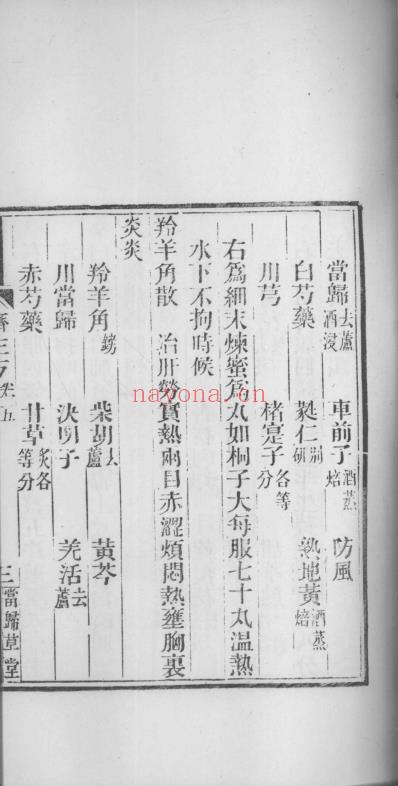 當歸去蘆酒浸 車前子酒蒸焙 防風
白芍藥 蕤仁別研 熟地黃酒蒸焙
川芎 楮寔子各等分
右爲細末煉蜜爲丸如桐子大每服七十丸温熱
水下不拘時候
羚羊角散 冶肝勞實熱兩目赤澀煩悶熱壅胸裏
炎炎
羚羊角鎊 柴胡去蘆 黃芩
川當歸 決明子 羌活去蘆
赤芍藥 甘草炙各等分
卷五 三 當歸草堂
nayona.cn